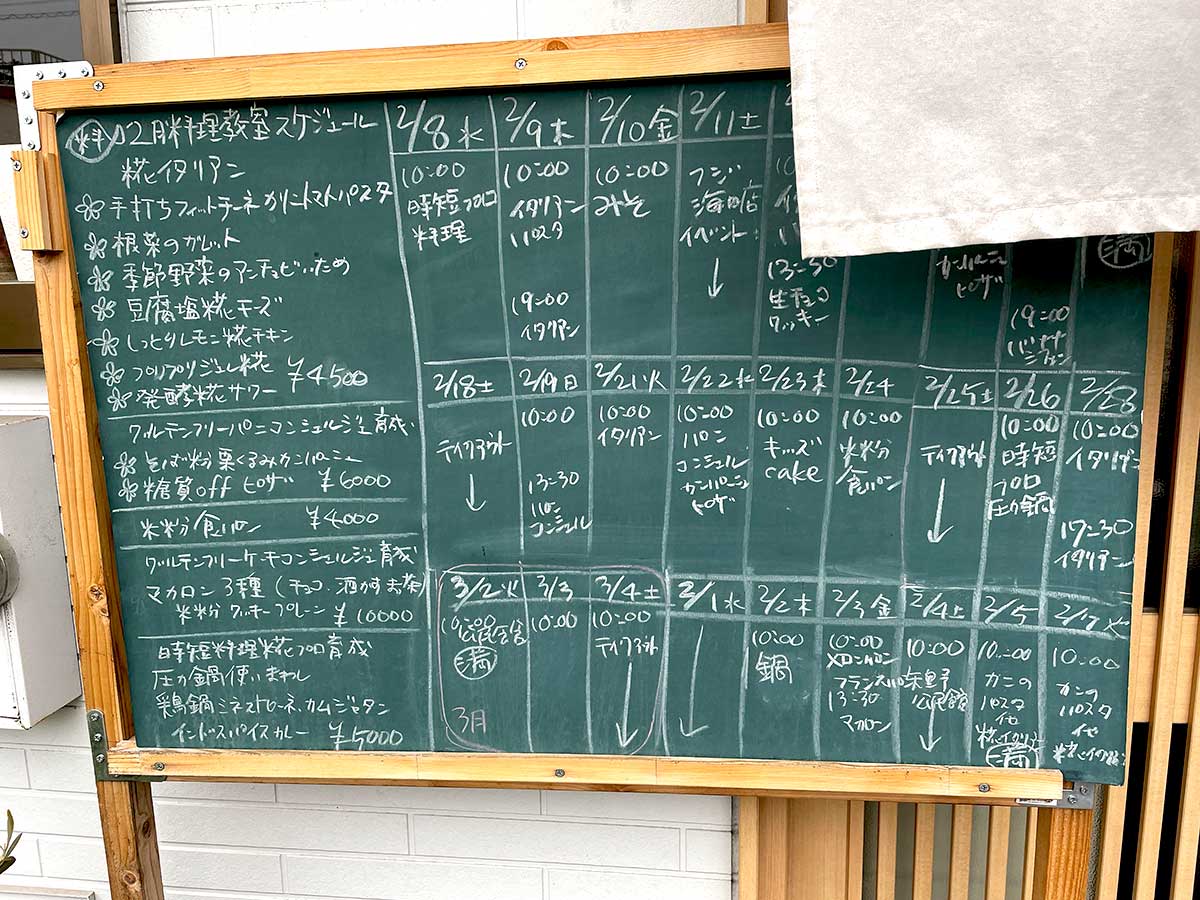 料 2月料理教室スケジュール
糀イタリアン
手打ちフィットチーネカリートマトパスタ
根菜のガレット
季節野菜のアンチョビいため
豆腐塩糀チーズ
しっとりレモン糀チキン
プリプリジュレ糀 ¥4500
発酵糀サワー
グルテンフリーパンコンシェルジュ育成
そば粉栗くるみカンパーニュ
糖質off ピザ ¥6000
米粉食パン ¥4000
グルテンフリーケーキコンシェルジュ育成
マカロン3種(チョコ.酒かすお茶)
米粉クッキープレーン ¥10000
時短料理糀プロ育成
圧力鍋使いまわし
鶏鍋ミネストローネ.カムジャタン
インドスパイスカレー ¥5000
2/8 水
10:00
時短プロ
料理
2/9 木
10:00
イタリアン
パスタ
19:00
イタリアン
2/10 金
10:00
みそ
2/11 土
フジ
海田店
イベント
↓
13:30
生チョコ
クッキー
カンパーニュ
ピザ
19:00
満
2/18 土
テイクアウト
↓
2/19 日
10:00
13:30
パン
コンシェル
2/21 火
10:00
イタリアン
2/22 水
10:00
パン
コンシェル
カンパーニュ
ピザ
2/23 木
10:00
キッズ
cake
2/24
10:00
米粉
食パン
2/25 土
テイクアウト
↓
2/26
10:00
時短
プロ
圧力鍋
2/28
10:00
イタリアン
17:30
イタリアン
3/2 火
10:00
公民館
満
3月
3/3
10:00
3/4 土
10:00
テイクアウト
↓
2/1 水
↓
2/2 木
10:00
鍋
2/3 金
10:00
メロンパン
フランスパン
13:30
マカロン
2/4 土
10:00
矢野
公民館
↓
2/5
10:00
カニの
パスタ
他
糀イタリアン
満
2/7 火
10:00
カニの
パスタ
他
糀イタリアン